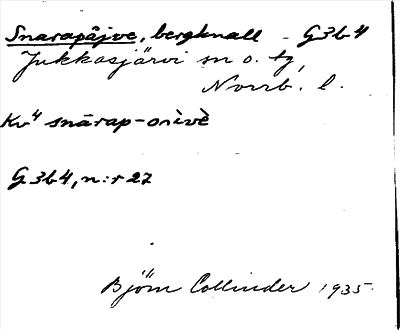 Snarapåjve, bergknall - G3b4
Jukkasjärvi sn o. tg,
Norrb. l.
Kv⁴ snārap-oai̯vè
G 3b4, n:r 27
Björn Collinder 1935